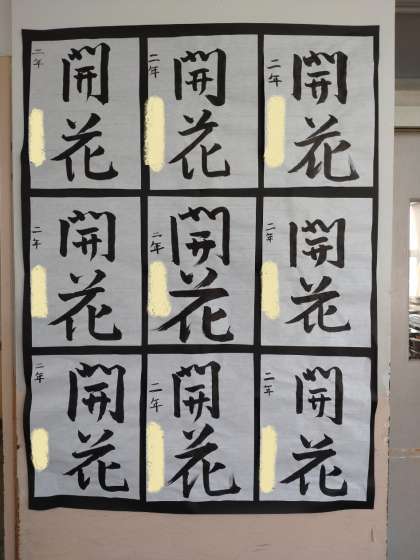 二年 開花
二年 開花
二年 開花
二年 開花
二年 開花
二年 開花
二年 開花
二年 開花
二年 開花